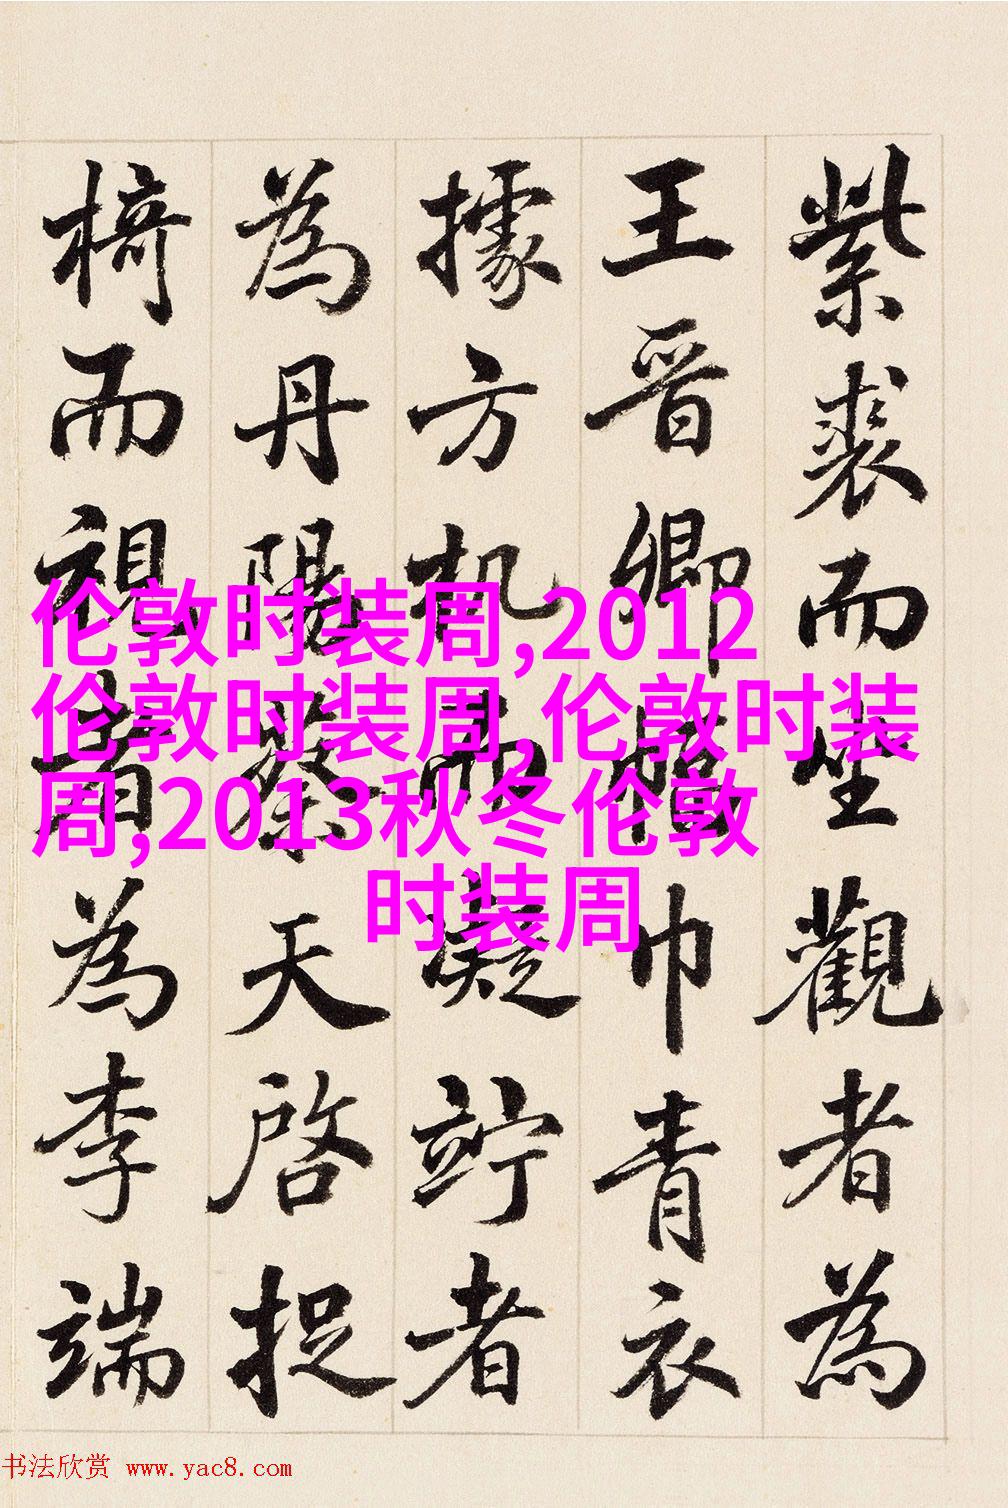 紫裘而坐觀者為
王晋卿幅巾青衣
據方机而凝竚者
為丹陽蔡天啓捉
椅而視者為李端
伦敦时装周,2012
伦敦时装周,伦敦时装
周,2013秋冬伦敦
时装周
书法欣赏 www.yac8.com